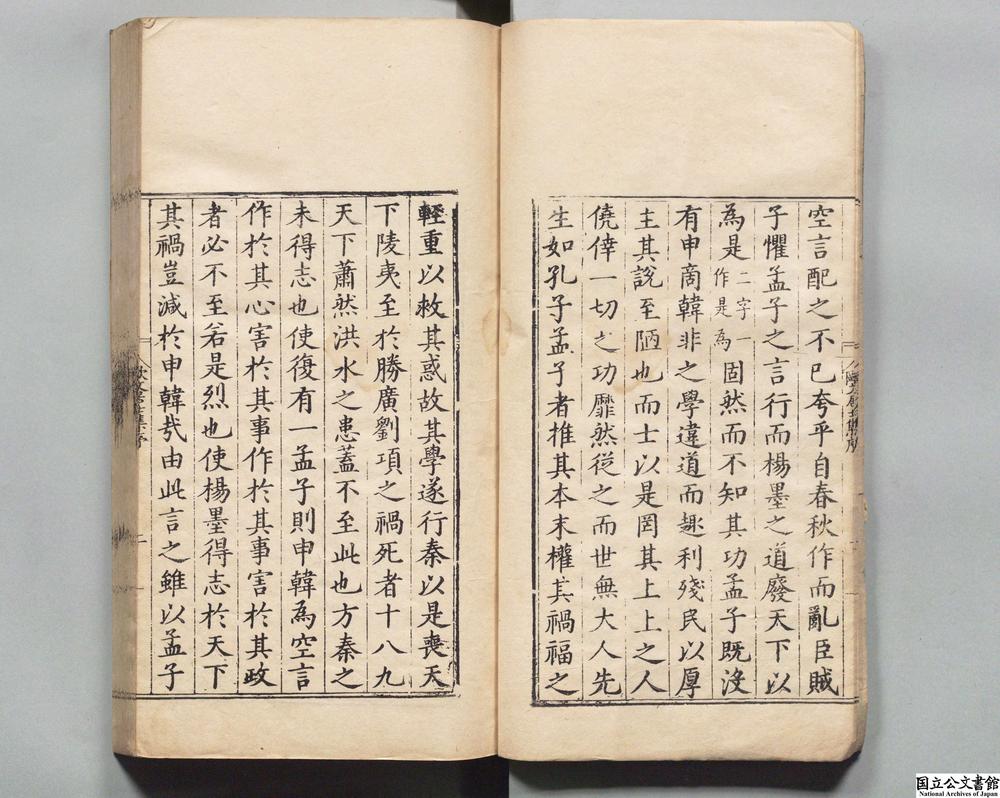 空言配之不已夸乎自春秋作而亂臣賊
子懼孟子之言行而楊墨之道廢天下以
為是二字一作是為固然而不知其功孟子既沒
有申商韓非之學違道而趣利殘民以厚
主其說至陋也而士以是罔其上上之人
僥倖一切之功靡然從之而世無大人先
生如孔子孟子者推其本末權其禍福之
輕重以救其惑故其學遂行秦以是喪天
下陵夷至於勝廣劉項之禍死者十八九
天下蕭然洪水之患蓋不至此也方秦之
未得志也使復有一孟子則申韓為空言
作於其心害於其事作於其事害於其政
者必不至若是烈也使楊墨得志於天下
其禍豈減於申韓哉由此言之雖以孟子
国立公文書館
National Archives of Japan